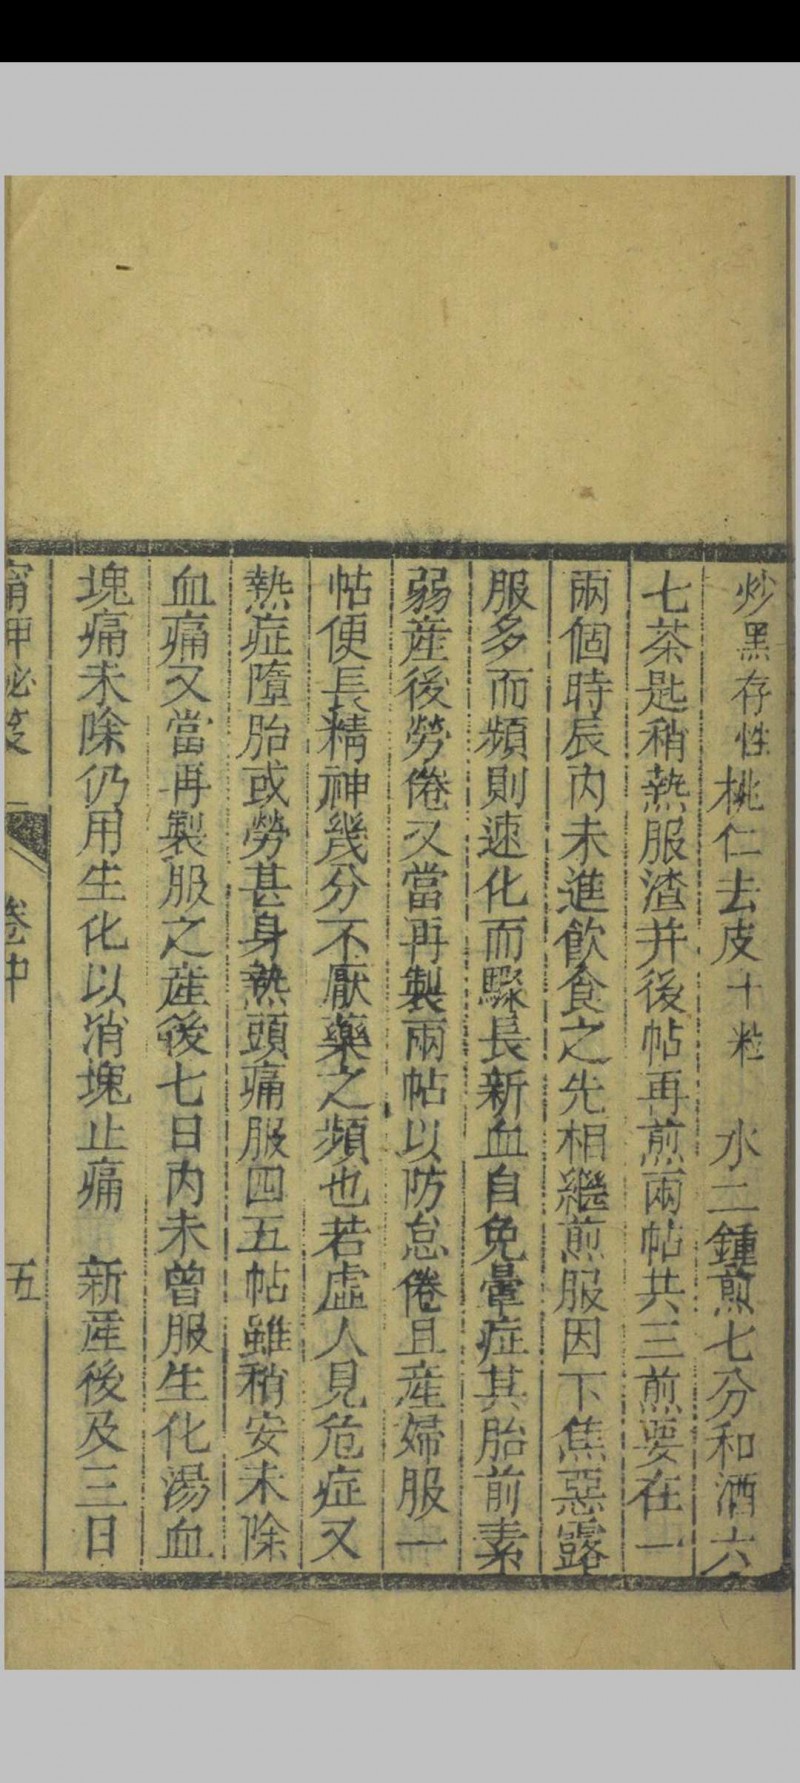 炒黑存性桃仁去皮十粒　水二鍾煎七分和酒六
七茶匙稍熱服渣并後帖再煎兩帖共三煎要在一
兩個時辰內未進飲食之先相繼煎服因下焦惡露
服多而頻則速化而驟長新血自免暈症其胎前素
弱產後勞倦又當再製兩帖以防怠倦且產婦服一
帖便長精神幾分不厭藥之頻也若虛人見危症又
熱症墮胎或勞甚身熱頭痛服四五帖雖稍安未除
血痛又當再製服之產後七日內未曾服生化湯血
塊痛未除仍用生化以消塊止痛　新產後及三日
卷中
五